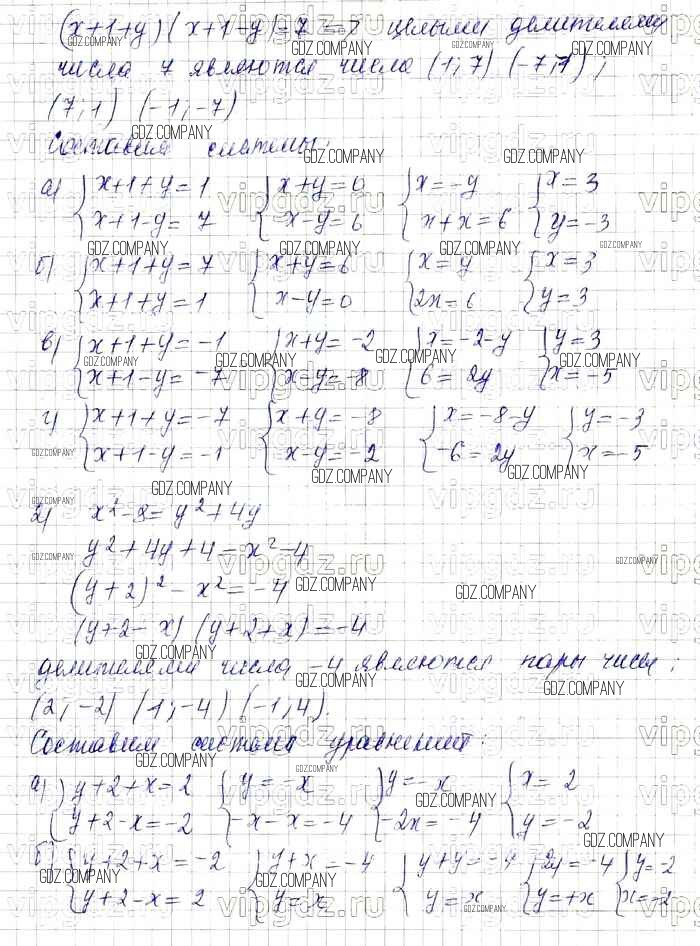 (x+1+y)(x+1-y)=7 => целыми делителями
числа 7 являются числа (1; 7) (-7; -1);
(7; 1) (-1; -7)
Составим системы:
а) {x+1+y=1 {x+y=0 {x=-y {x=3
x+1-y=7 x-y=6 x+x=6 y=-3
б) {x+1+y=7 {x+y=6 {x=y {x=3
x+1+y=1 x-y=0 2x=6 y=3
в) {x+1+y=-1 {x+y=-2 {x=-2-y {y=3
x+1-y=-7 x-y=-8 6=2y x=-5
г) {x+1+y=-7 {x+y=-8 {x=-8-y {y=-3
x+1-y=-1 x-y=-2 -6=2y x=-5
2) y²+4y
y²+4y+4=x²-4
(y+2)²-x²=-4
(y+2-x)(y+2+x)=-4
делителями числа -4 являются пары чисел:
(2; -2) (1; -4) (-1; 4).
Составим системы уравнений:
а) {y+2+x=2 {y=-x {y=-x {x=2
y+2-x=-2 -x-x=-4 -2x=-4 y=-2
б) {y+2+x=-2 {y+x=-4 {y+y=-4 {2y=-4 {y=-2
y+2-x=2 y=x y=x y=+x x=-2
GDZ.COMPANY
vipgdz.ru